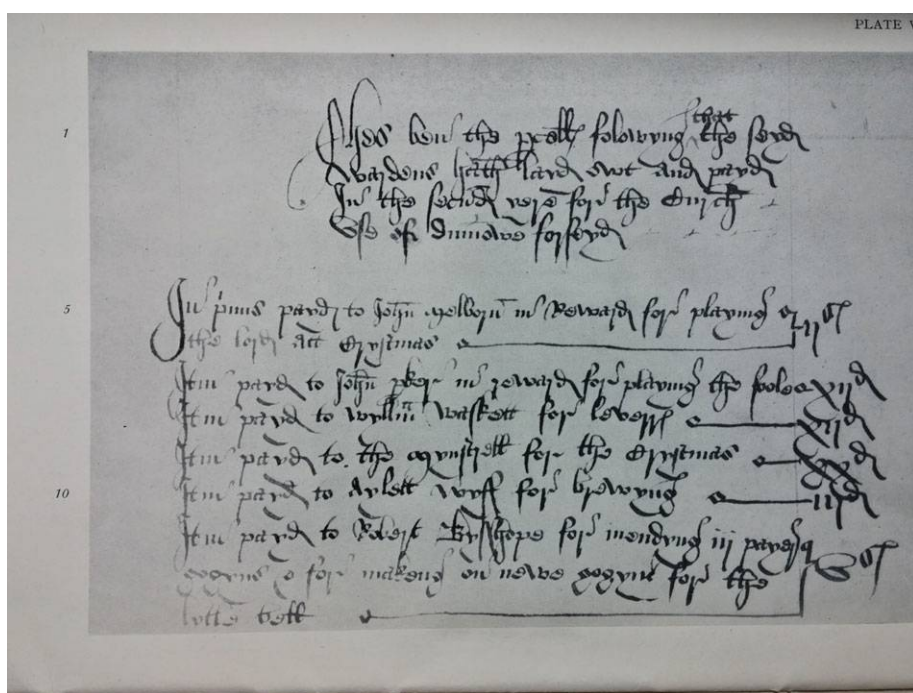 PLATE V
1
Thes ben the pcell folowyng that the seyd
Wardens hathe layd owt and payd
In the secund yere for the Chirch
Vse of Dunmowe forseyd
5
In pimis payd to John Melborn in Reward for playing
the lord att Crystmas ijs
Itm payd to John pker in reward for playing the foole xijd
Itm payd to Wyllm Waskett for leverss
Itm payd to the mynstrell for the Crystmas
10
Itm payd to Aylett wyff for brewyng
Itm payd to Robert Bysshope for mendyng iij payer
gogyns & for makeng on newe gogyn for the
lytle bell vs